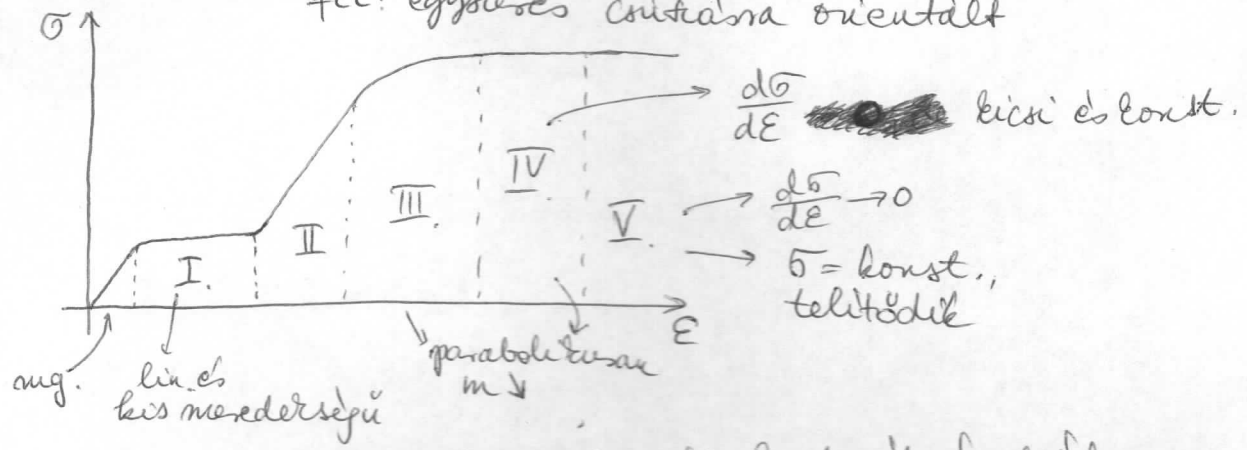 fcc: egyszeres csúszásra orientált
σ
dσ/dε kicsi és konst.
IV.
III.
II
I.
V.
dσ/dε → 0
σ = konst.,
telítődik
ε
mg.
lin. és
kis meredekségű
parabolikusan
m ↘